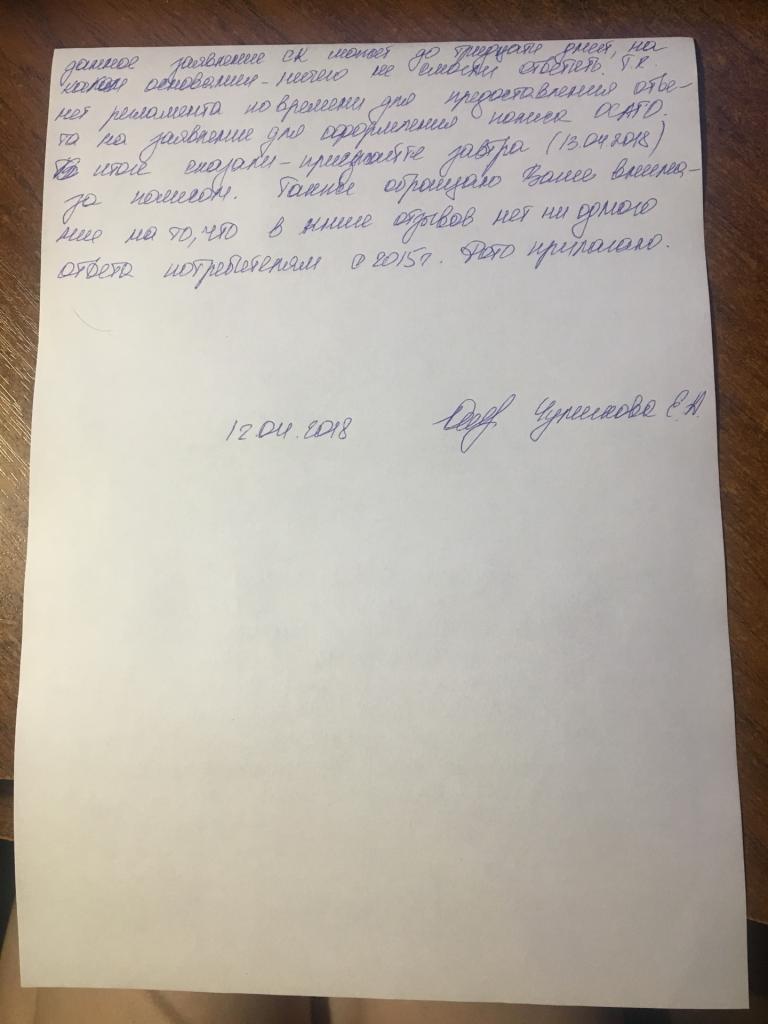 данное заявление СК может до тридцати дней, на
каком основании - ничего не смогли ответить. Т.к.
нет регламента по времени для предоставления отве-
та на заявление для оформления полиса ОСАГО.
В итоге сказали - приезжайте завтра (13.04.2018)
за полисом. Также обращаю Ваше внима-
ние на то, что в книге отзывов нет ни одного
ответа потребителям с 2015г. Фото прилагаю.
12.04.2018 Чурикова Е.А.